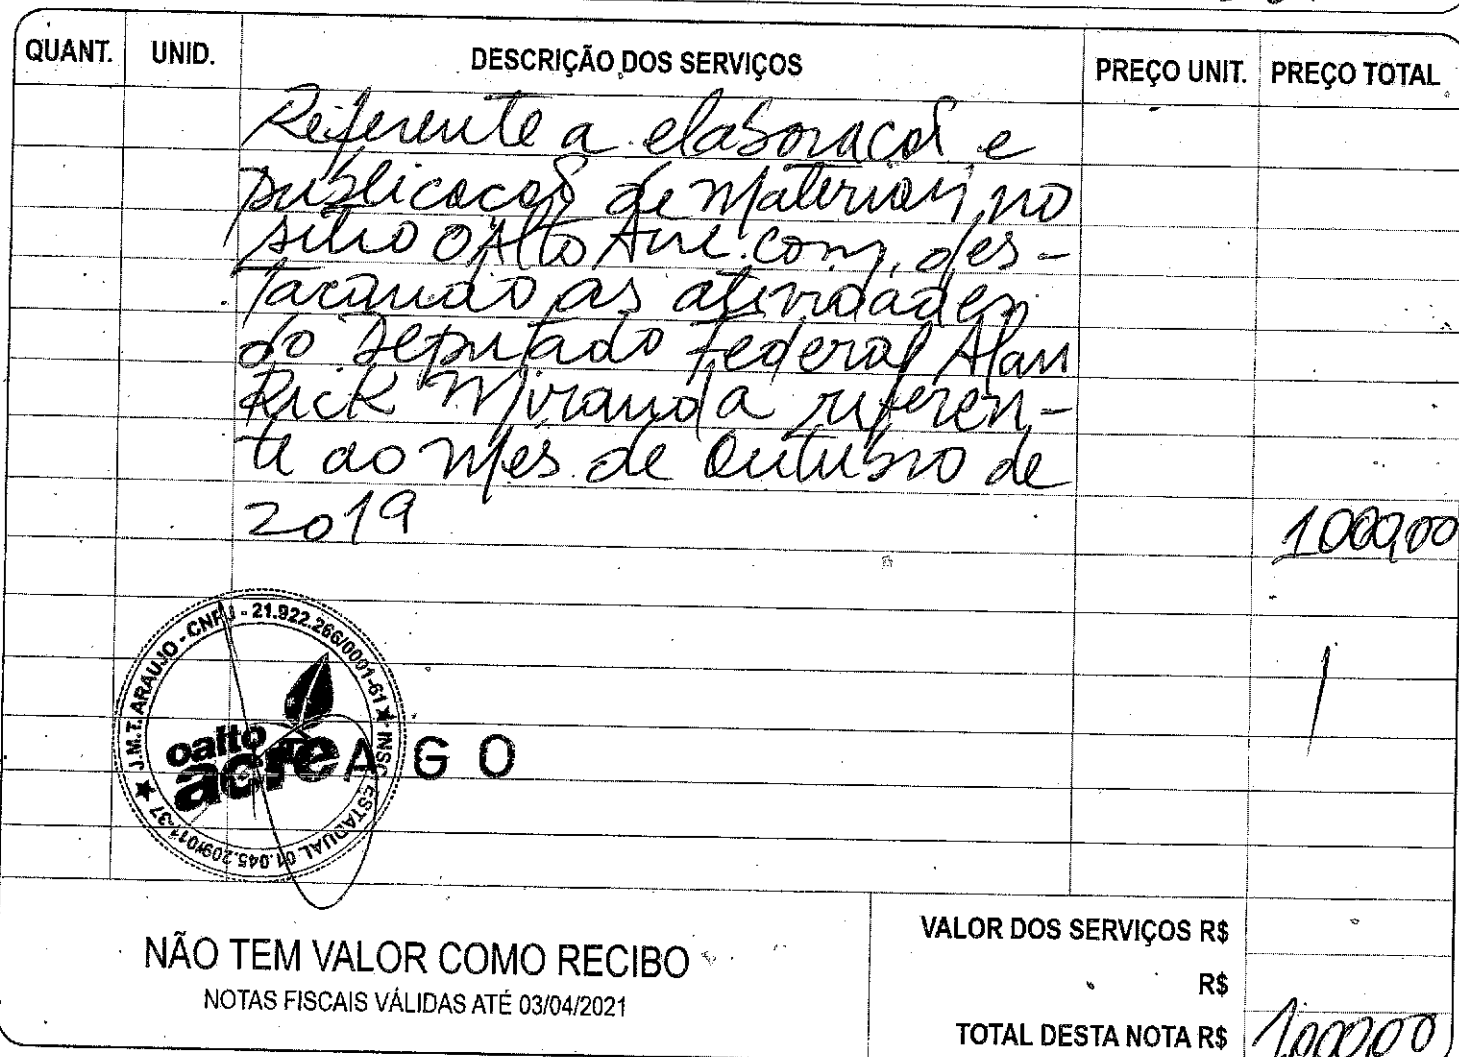 QUANT. UNID. DESCRIÇÃO DOS SERVIÇOS PREÇO UNIT. PREÇO TOTAL
Referente a elaboração e
publicação de Materiais, no
sitio OAlto Acre.com, des-
tacando as atividades
do Deputado Federal Alan
Rick Miranda referen-
te ao Mês de Outubro de
2019 1000,00
J.M.T. ARAUJO - CNPJ - 21.922.266/0001-61 ★ INSC. ESTADUAL 01.045.209/011-37 ★
oalto
acre
A G O
NÃO TEM VALOR COMO RECIBO
NOTAS FISCAIS VÁLIDAS ATÉ 03/04/2021
VALOR DOS SERVIÇOS R$
R$
TOTAL DESTA NOTA R$ 1.000,00